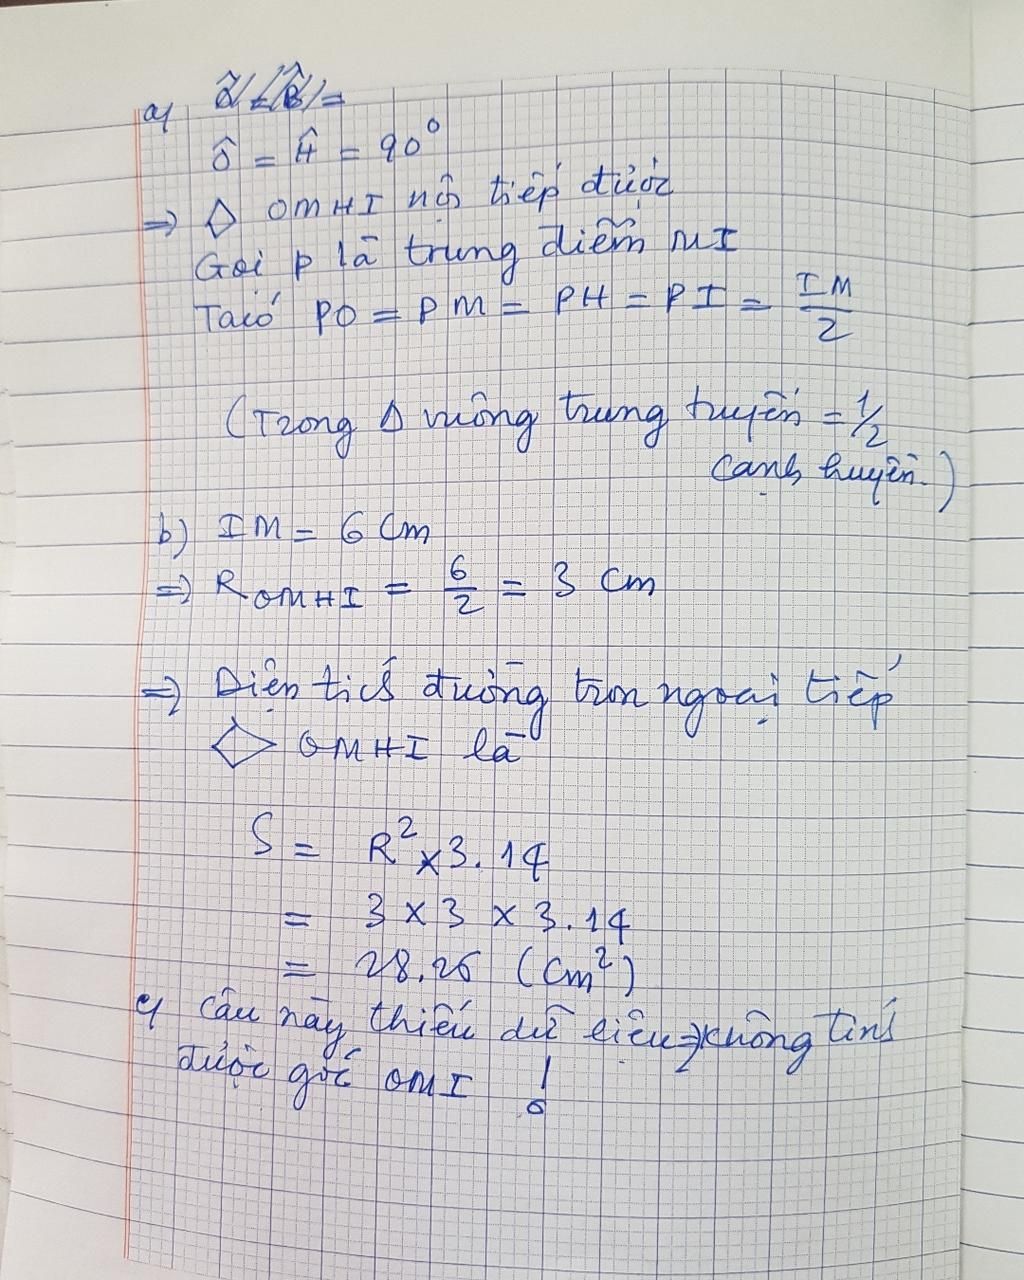 a)
Ô = Ĥ = 90°
=> ◇ OMHI nội tiếp được
Gọi P là trung điểm MI
Ta có PO = PM = PH = PI = IM/2
(Trong Δ vuông trung tuyến = 1/2
cạnh huyền.)
b) IM = 6 cm
=> R OMHI = 6/2 = 3 cm
=> Diện tích đường tròn ngoại tiếp
◇ OMHI là
S = R² x 3.14
= 3 x 3 x 3.14
= 28.26 (cm²)
c) câu này thiếu dữ liệu => không tính
được góc OMI !